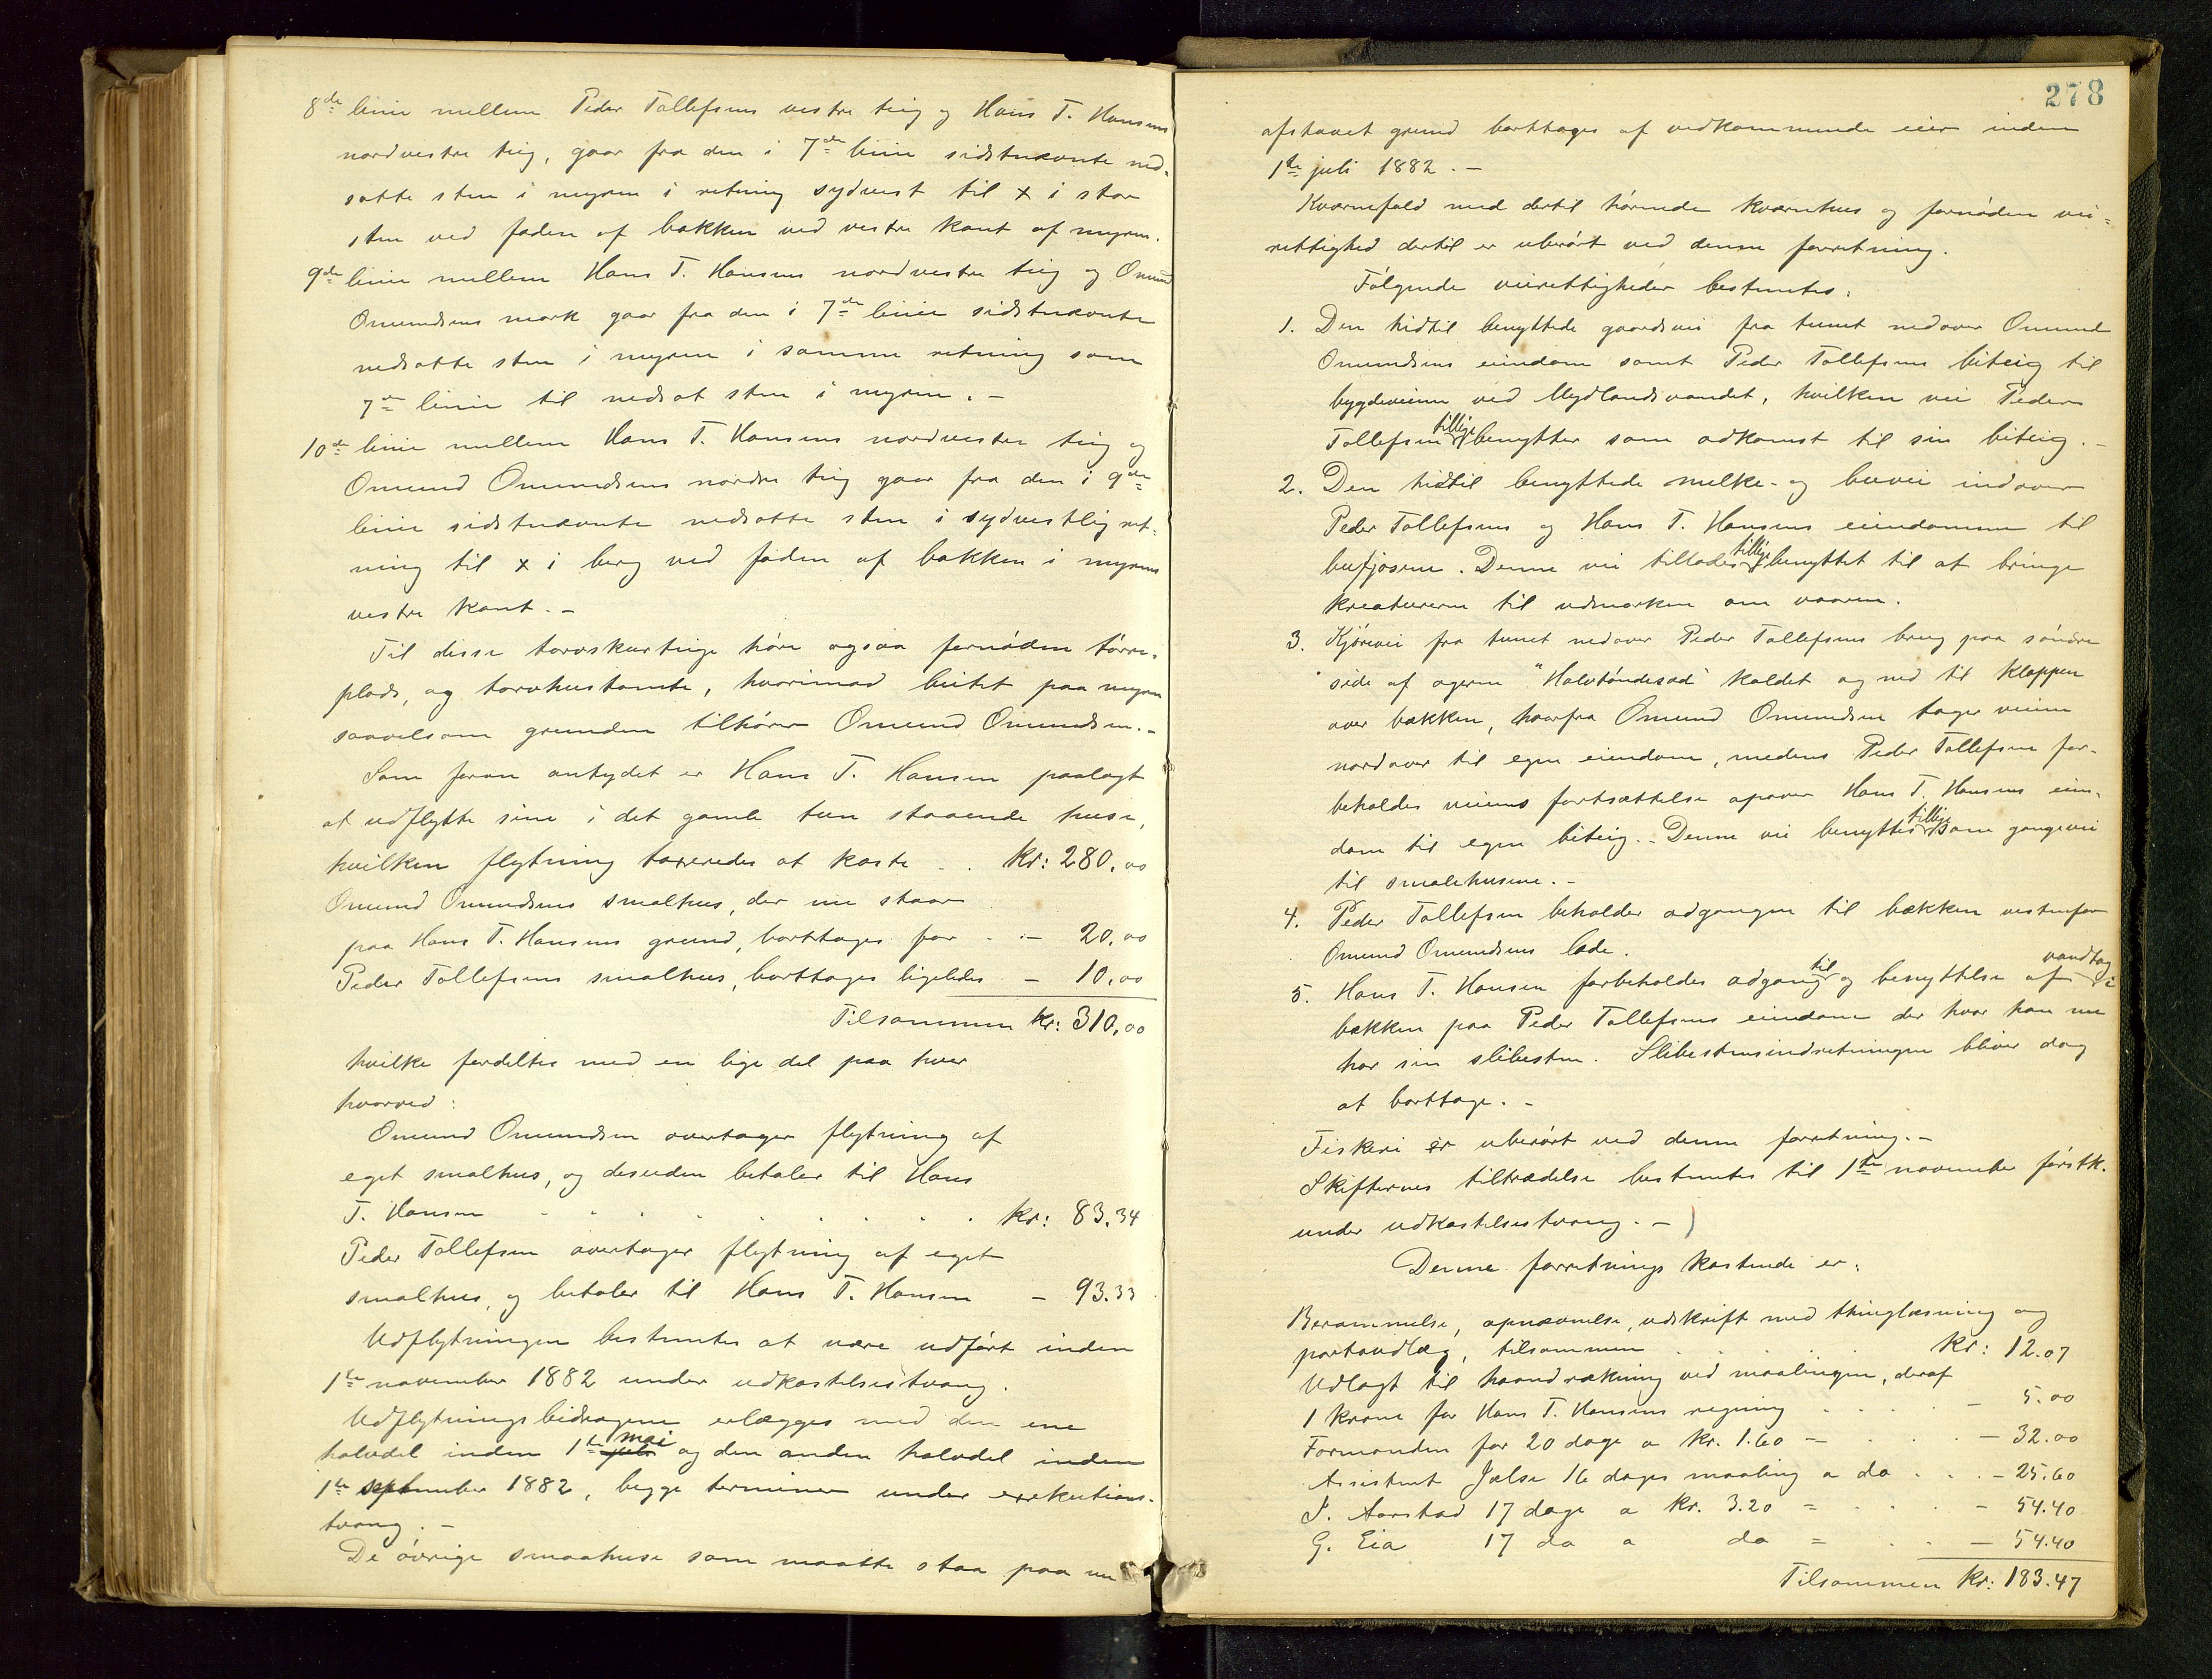 8de linie mellem Peder Tollefsens vestre teig og Hans T. Hansens
nordvestre teig, gaar fra den i 7de linie sidstnævnte ned-
satte sten i myren i retning sydvest til x i stor
sten ved foden af bakken ved vestre kant af myren.
9de linie mellem Hans T. Hansens nordvestre teig og Omund
Omundsens mark gaar fra den i 7de linie sidstnævnte
nedsatte sten i myren i samme retning som
7de linie til nedsat sten i myren. -
10de linie mellem Hans T. Hansens nordvestre teig og
Omund Omundsens nordre teig gaar fra den i 9de
linie sidstnævnte nedsatte sten i sydvestlig ret-
ning til x i berg ved foden af bakken i myrens
vestre kant. -
Til disse torvskurteige hører ogsaa fornøden tørre-
plads, og torvhustomte, hvorimod beitet paa myren
saavelsom grunden tilhører Omund Omundsen. -
Som foran antydet er Hans T. Hansen paalagt
at udflytte sine i det gamle tun staaende huse,
hvilken flytning taxeredes at koste . . kr: 280,00
Omund Omundsens smalhus, der nu staar
paa Hans T. Hansens grund, borttages for . - 20,00
Peder Tollefsens smalhus, borttages ligeledes - 10,00
Tilsammen kr: 310,00
hvilke fordeltes med en lige del paa hver
hvorved:
Omund Omundsen overtager flytning af
eget smalhus, og desuden betaler til Hans
T. Hansen . . . . . . . . . kr: 83.34
Peder Tollefsen overtager flytning af eget
smalhus, og betaler til Hans T. Hansen - 93.33
Udflytningen bestemtes at være udført inden
1te november 1882 under udkastelsestvang.
Udflytningsbidragene erlægges med den ene
halvdel inden 1te mai og den anden halvdel inden
1te september 1882, begge terminer under exekutions-
tvang. -
De øvrige smaahuse som maatte staa paa nu
278
afstaaet grund borttages af vedkommende eier inden
1te juli 1882. -
Kværnefald med dertil hørende kværnhus og fornøden vei-
rettighed dertil er uberørt ved denne forretning.
Følgende veirettigheder bestemtes:
1. Den hidtil benyttede gaardsvei fra tunet nedover Omund
Omundsens eiendom samt Peder Tollefsens biteig til
bygdeveien ved Mydlandsvandet, hvilken vei Peder
Tollefsen tillige benytter som adkomst til sin biteig. -
2. Den hidtil benyttede melke- og buvei indover
Peder Tollefsens og Hans T. Hansens eiendomme til
bufjøsene. Denne vei tillades tillige benyttet til at bringe
kreaturerne til udmarken om vaaren.
3. Kjørevei fra tunet nedover Peder Tollefsens brug paa søndre
side af ageren "Halvtøndesæd" kaldet og ned til kloppen
over bækken, hvorfra Omund Omundsen tager veien
nordover til egen eiendom, medens Peder Tollefsen for-
beholdes veiens fortsættelse opover Hans T. Hansens eien-
dom til egen biteig. - Denne vei benyttes tillige som gangevei
til smalehusene. -
4. Peder Tollefsen beholder adgangen til bækken vestenfor
Omund Omundsens lade.
5. Hans T. Hansen forbeholdes adgang til og benyttelse af vandtag i
bækken paa Peder Tollefsens eiendom der hvor han nu
har sin slibesten. Slibestensindretningen bliver dog
at borttage. -
Fiskeri er uberørt ved denne forretning. -
Skifternes tiltrædelse bestemtes til 1te november førstk.
under udkastelsestvang. -
Denne forretnings kostende er:
Berammelse, opnævnelse, udskrift med thinglæsning og
portoudlæg, tilsammen . . . . kr: 12.07
Udlagt til haandrækning ved maalingen, deraf
1 krone for Hans T. Hansens regning . . . - 5.00
Formanden for 20 dage a kr. 1.60 = . . . - 32.00
Assistent Jælse 16 dages maaling a do . . . - 25.60
P. Aarstad 17 dage a kr. 3.20 = . . . - 54.40
G. Eia 17 do a do = . . - 54.40
Tilsammen kr: 183.47